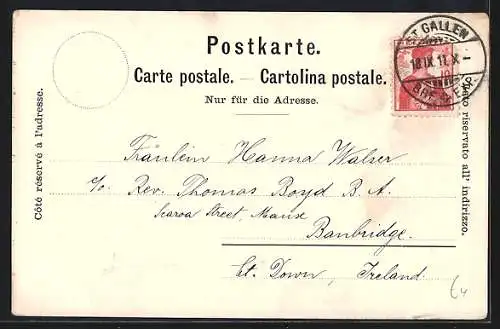 Postkarte.
Carte postale. — Cartolina postale.
Nur für die Adresse.
Côté réservé à l'adresse.
ST. GALLEN
18.IX.11.X-
BRF. EXP.
10
Lato riservato all' indirizzo.
Fräulein Hanna Walser
c/o Rev. Thomas Boyd B. A.
Scarva Street, Manse
Banbridge.
Ct. Down, Ireland.